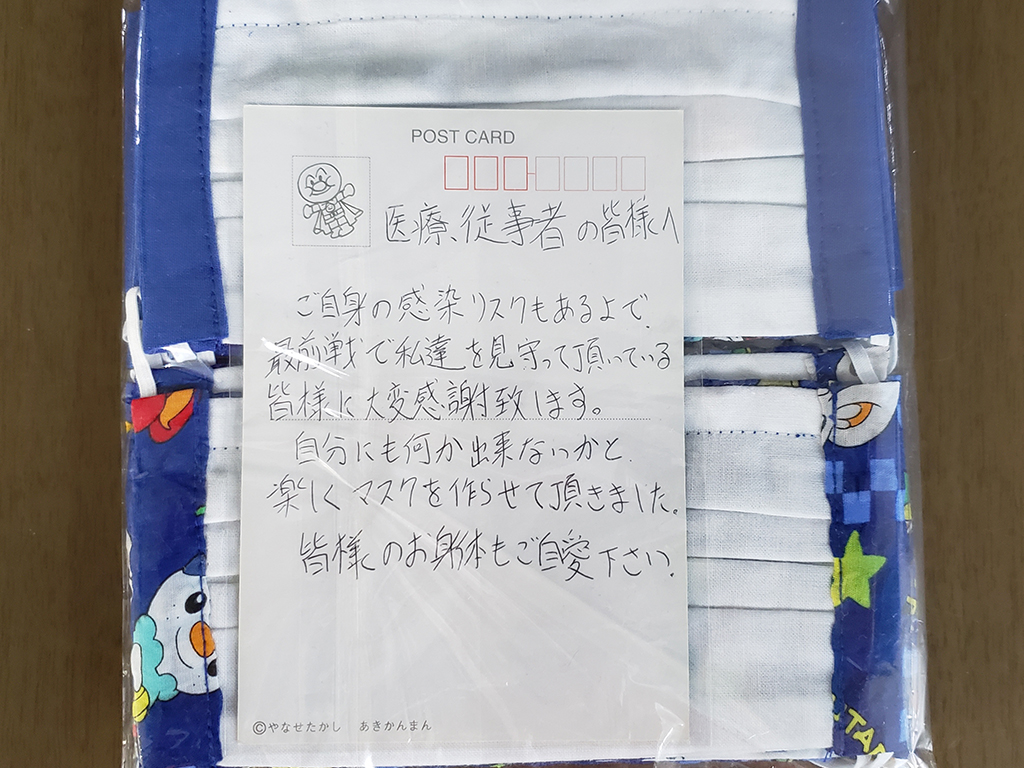 POST CARD
医療、従事者の皆様へ
ご自身の感染リスクもあるよで、
最前戦で私達を見守って頂いている
皆様に大変感謝致します。
自分にも何か出来ないかと、
楽しくマスクを作らせて頂きました。
皆様のお身体もご自愛下さい。
©やなせたかし あきかんまん